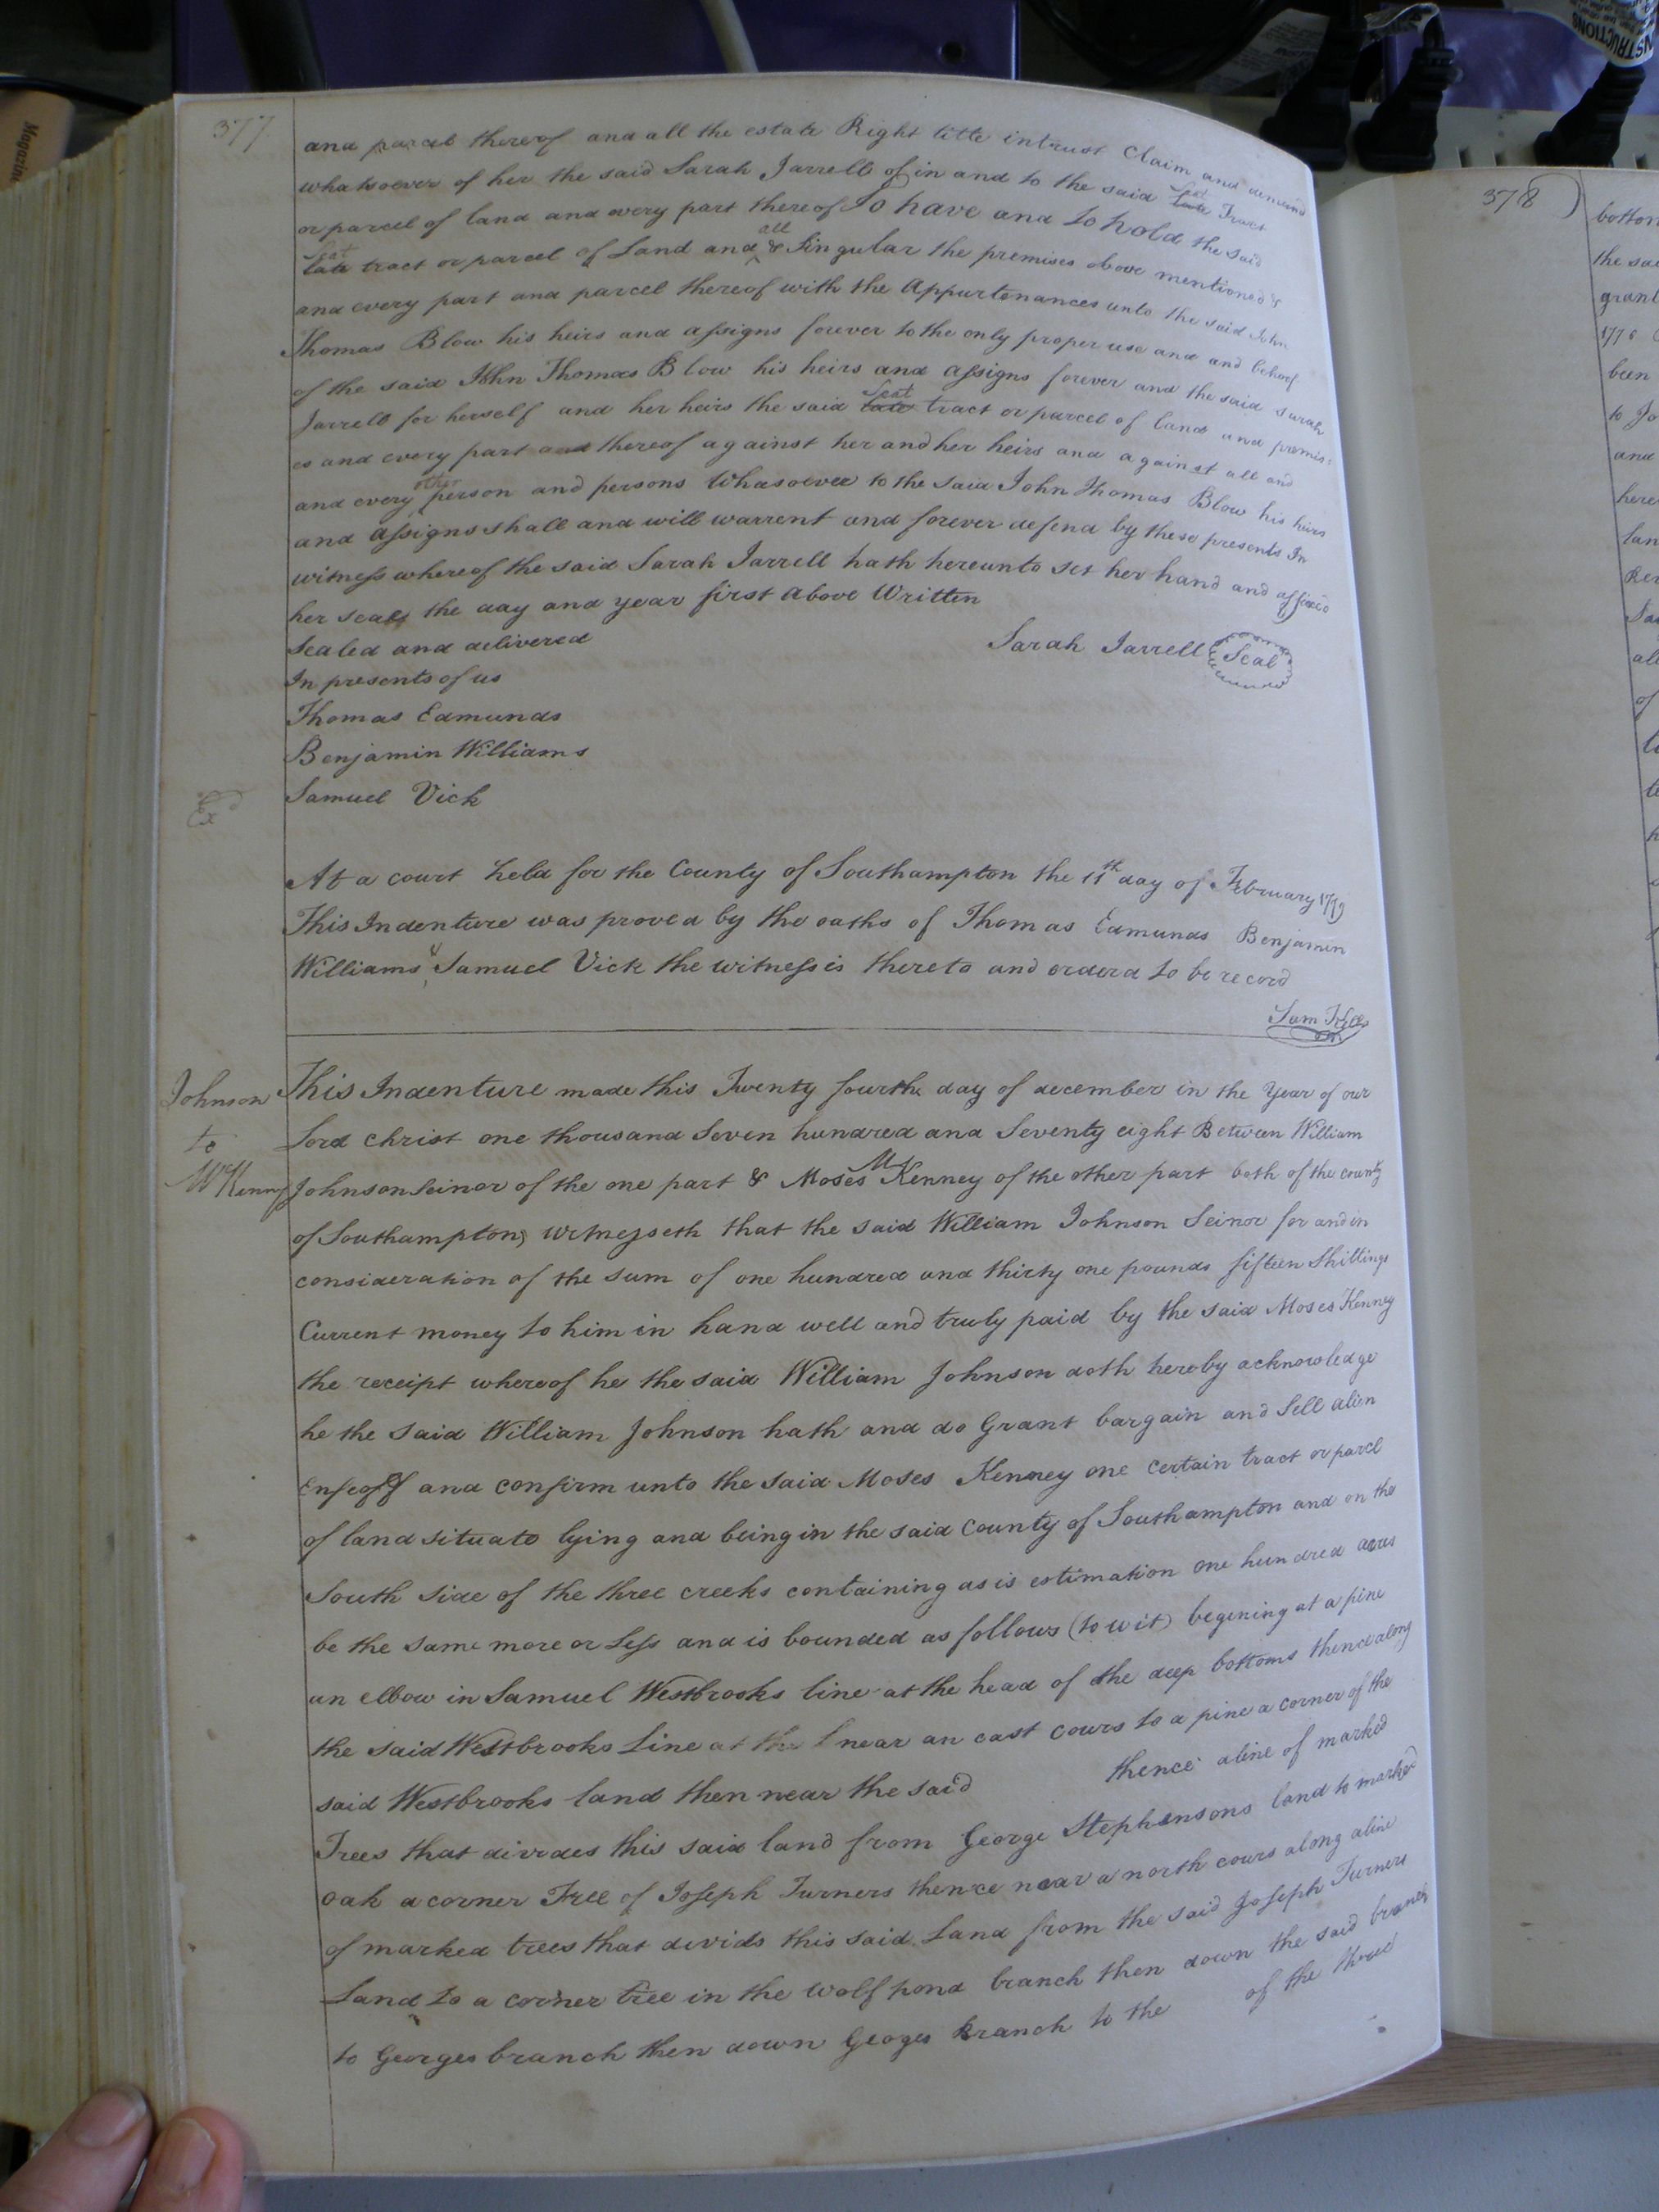 377
and parcel thereof and all the estate Right title intrust Claim and demand
whatsoever of her the said Sarah Jarrell of in and to the said Seat Tract
or parcel of land and every part thereof To have and to hold the said
Seat tract or parcel of Land and all & Singular the premises above mentioned &
and every part and parcel thereof with the Appurtenances unto the said John
Thomas Blow his heirs and assigns forever to the only proper use and and behoof
of the said John Thomas Blow his heirs and assigns forever and the said Sarah
Jarrell for herself and her heirs the said Seat tract or parcel of land and premis:
es and every part and thereof against her and her heirs and against all and
and every other person and persons Whasoever to the said John Thomas Blow his heirs
and assigns shall and will warrent and forever defend by these presents In
witness whereof the said Sarah Jarrell hath hereunto set her hand and affixed
her seal the day and year first above Written
Sealed and delivered
Sarah Jarrell Seal
In presents of us
Thomas Edmunds
Benjamin Williams
Samuel Vick
Exd
At a court held for the County of Southampton the 11th day of February 1779
This Indenture was proved by the oaths of Thomas Edmunds Benjamin
Williams & Samuel Vick the witnessis thereto and orderd to be record
Johnson
to
McKenny
This Indenture made this Twenty fourth day of december in the Year of our
Lord christ one thousand Seven hundred and Seventy eight Between William
Johnson Seinor of the one part & Moses McKenney of the other part both of the county
of Southampton, witnesseth that the said William Johnson Seinor for and in
consideration of the sum of one hundred and thirty one pounds fifteen Shillings
Current money to him in hand well and truly paid by the said Moses Kenney
the receipt whereof he the said William Johnson doth hereby acknowledge
he the said William Johnson hath and do Grant bargain and Sell alien
Enfeoff and confirm unto the said Moses Kenney one certain tract or parcl
of land situate lying and being in the said County of Southampton and on the
South side of the three creeks containing as is estimation one hundred acres
be the same more or Less and is bounded as follows (to wit) begening at a pine
an elbow in Samuel Westbrooks line at the head of the deep bottoms thence along
the said Westbrooks Line at the near an east cours to a pine a corner of the
said Westbrooks land then near the said thence a line of marked
Trees that divides this said land from George Stephensons land to marked
oak a corner Tree of Joseph Turners thence near a north cours along a line
of marked trees that divids this said Land from the said Joseph Turners
Land to a corner tree in the wolf pond branch then down the said branch
to Georges branch then down Geoges Branch to the of the three
378
bottom
the sa
grant
1776
been
to Jo
and
here
lan
al
of